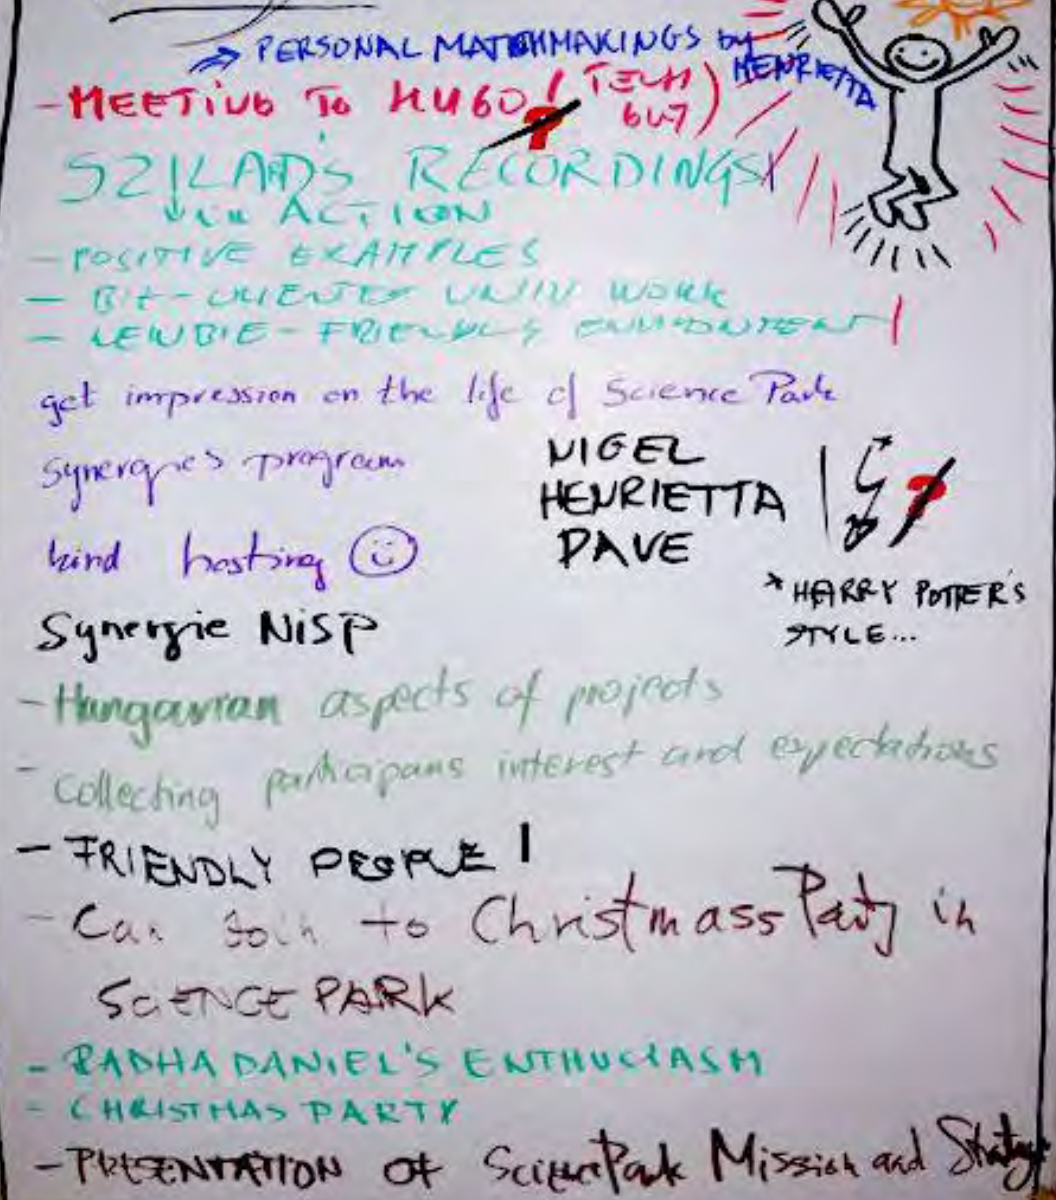 PERSONAL MATCHMAKINGS by HENRIETTA
- MEETING TO HUGO! (TECH GUY)
?
RECORDINGS!
in ACTION
- POSITIVE EXAMPLES
- UNIV WORK
- NEWBIE-FRIENDLY ENVIRONMENT!
get impression on the life of Science Park
synergies program
NIGEL
HENRIETTA
DAVE
?
kind hosting
* HARRY POTTER'S
STYLE...
Synergie NISP
- Hungarian aspects of projects
- Collecting participans interest and expectations
- FRIENDLY PEOPLE!
- Can join to Christmass Party in
SCIENCE PARK
- RADHA DANIEL'S ENTHUSIASM
- CHRISTMAS PARTY
- PRESENTATION of Science Park Mission and Strategy